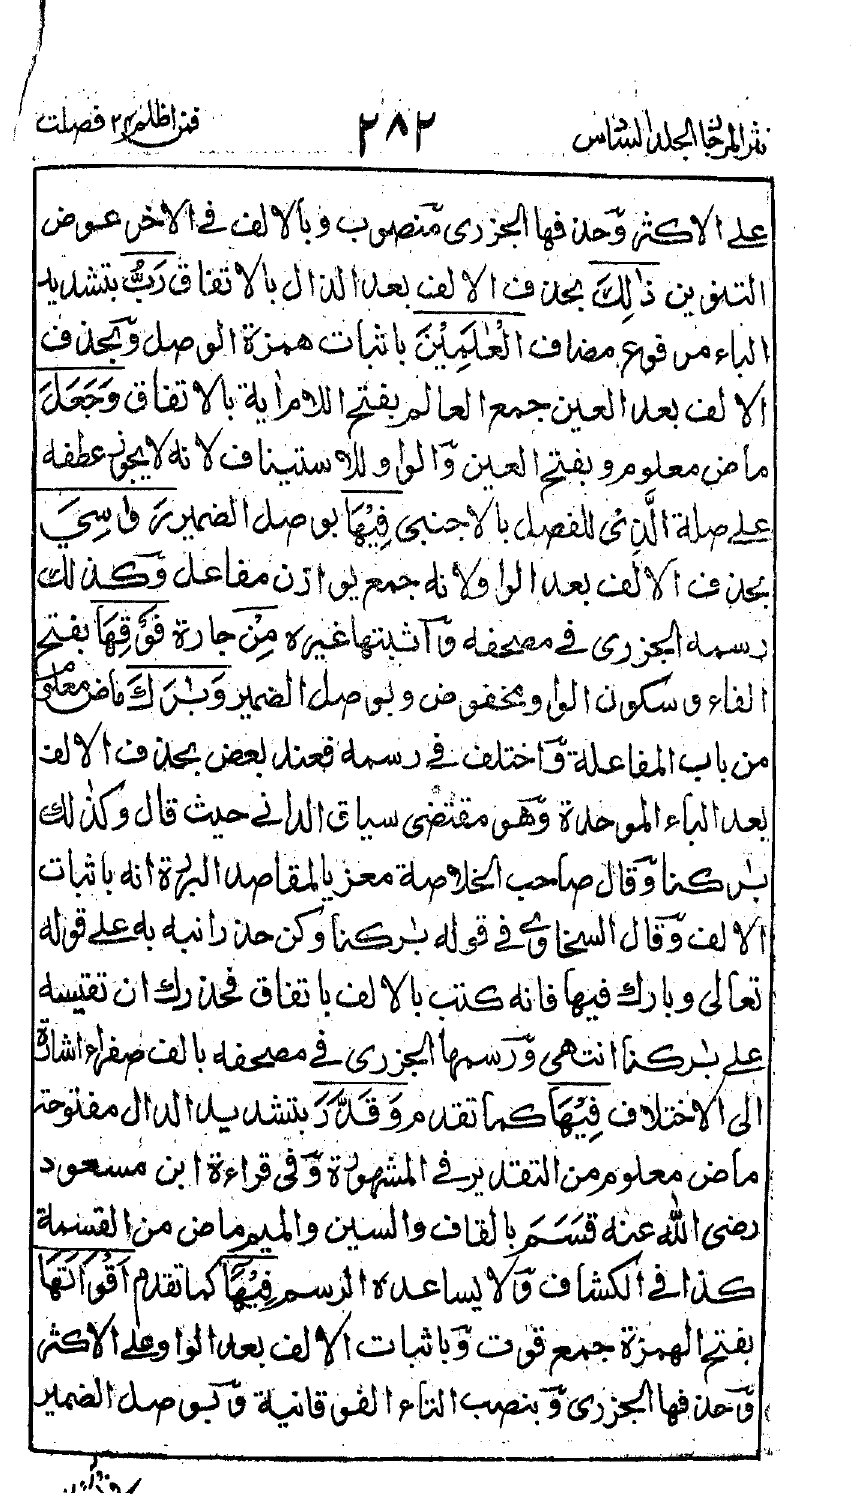 نثر المرجان الجلد السادس ٢٨٢ فمن اظلم ٢٤ فصلت
على الاكثر وّحذفها الجزرى مّنصوب وبالالف فے الاخر عوض
التنوين ذٰلِكَ بحذف الالف بعد الذال بالاتفاق رَبُّ بتشديد
الباء مرفوع مضاف الْعٰلَمِيْنَ باثبات همزة الوصل وّبحذف
الالف بعد العين جمع العالم بفتح اللام اٰية بالاتفاق وَجَعَلَ
ماض معلوم وبفتح العين وّالواو للاستيناف لانه لايجوز عطفه
على صلة الَّذِىْ للفصل بالاجنبى فِيْهَا بوصل الضمير رَوَاسِيَ
بحذف الالف بعد الواو لانه جمع يوازن مفاعل وّكذلك
رسمه الجزرى فے مصحفه وّاثبتها غيره مِنْ جارة فَوْقِهَا بفتح
الفاء وسكون الواو مخفوض وبوصل الضمير وَبٰرَكَ ماض معلوم
من باب المفاعلة وّاختلف فے رسمه فعند بعض بحذف الالف
بعد الباء الموحدة وّهو مقتضى سياق الدانے حيث قال وكذلك
بٰركنا وّقال صاحب الخلاصة معزيا لمقاصد البررة انه باثبات
الالف وّقال السخاوى فے قوله بٰركنا وكن حذرا نبه به على قوله
تعالى وبارك فيها فانه كتب بالالف باتفاق فحذرك ان تقيسه
على بٰركنا انتهى وّرسمها الجزرى فے مصحفه بالف صفراء اشارة
الى الاختلاف فِيْهَا كما تقدم وَقَدَّرَ بتشديد الدال مفتوحة
ماض معلوم من التقدير فے المشهورة وّفى قراءة ابن مسعود
رضى الله عنه قَسَمَ بالقاف والسين والميم ماض من القسمة
كذا فے الكشاف وّلا يساعده الرسم فِيْهَا كما تقدم اَقْوَاتَهَا
بفتح الهمزة جمع قوت وّباثبات الالف بعد الواو على الاكثر
وّحذفها الجزرى وّبنصب التاء الفوقانية وّبوصل الضمير